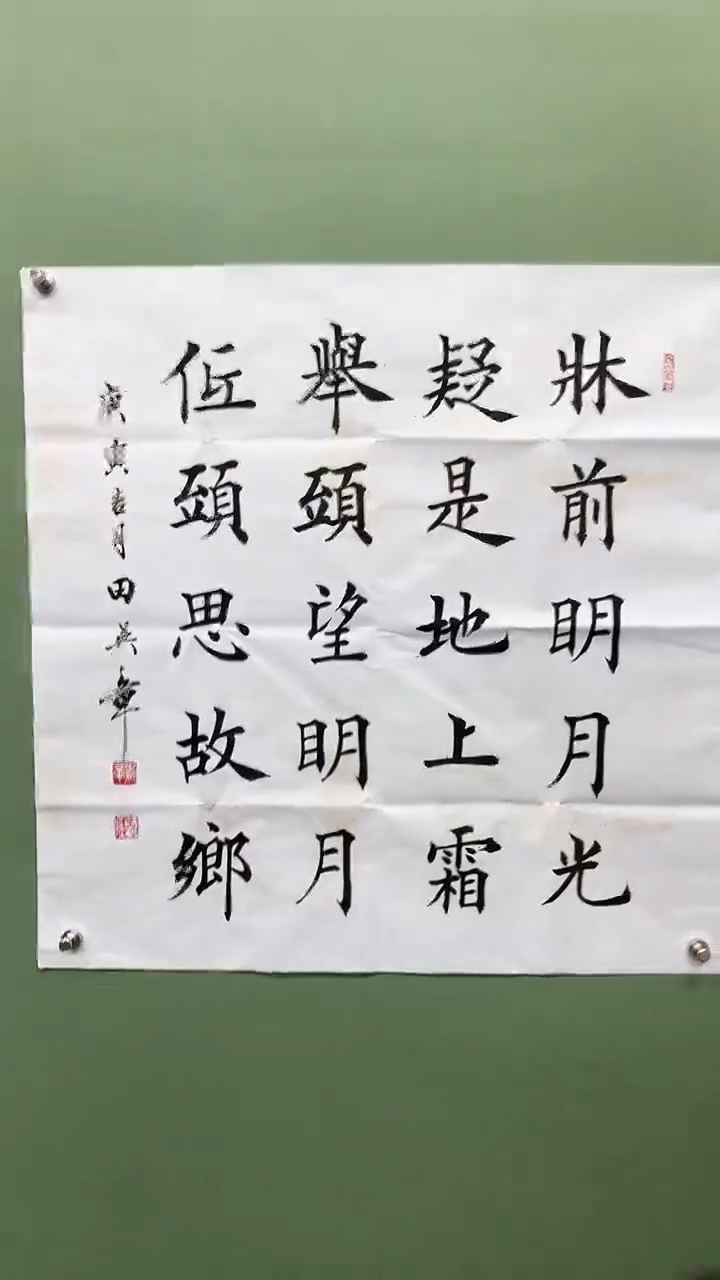 牀前明月光
疑是地上霜
舉頭望明月
低頭思故鄉
庚寅吉月田英章